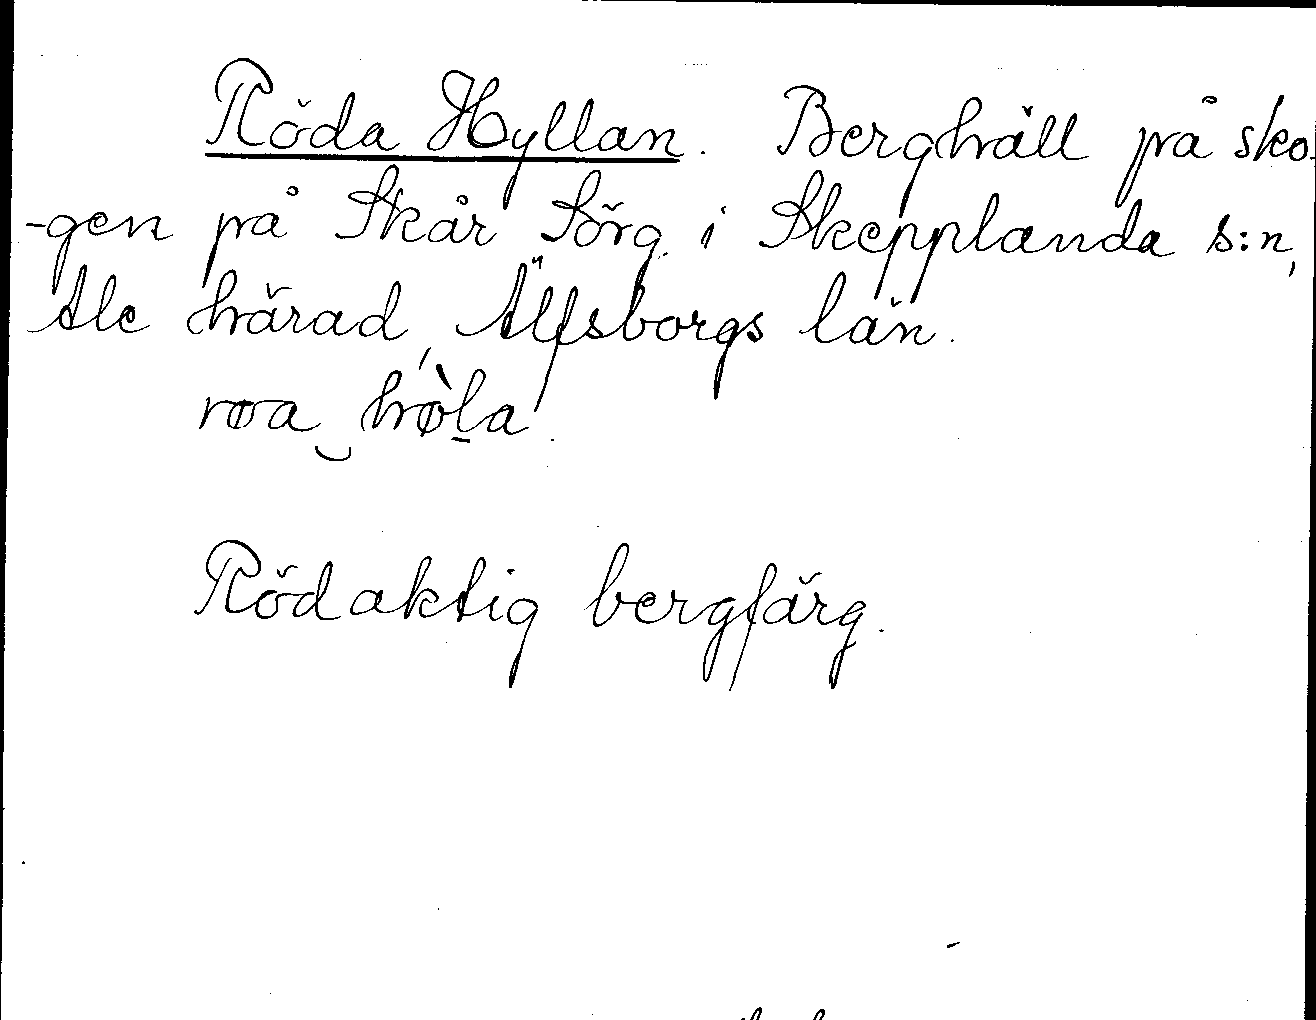 Röda Hyllan. Berghäll på sko-
-gen på Skår Sörg. i Skepplanda s:n,
Ale härad, Älfsborgs län.
røa ‿ hø̀l̠a.
Rödaktig bergfärg.